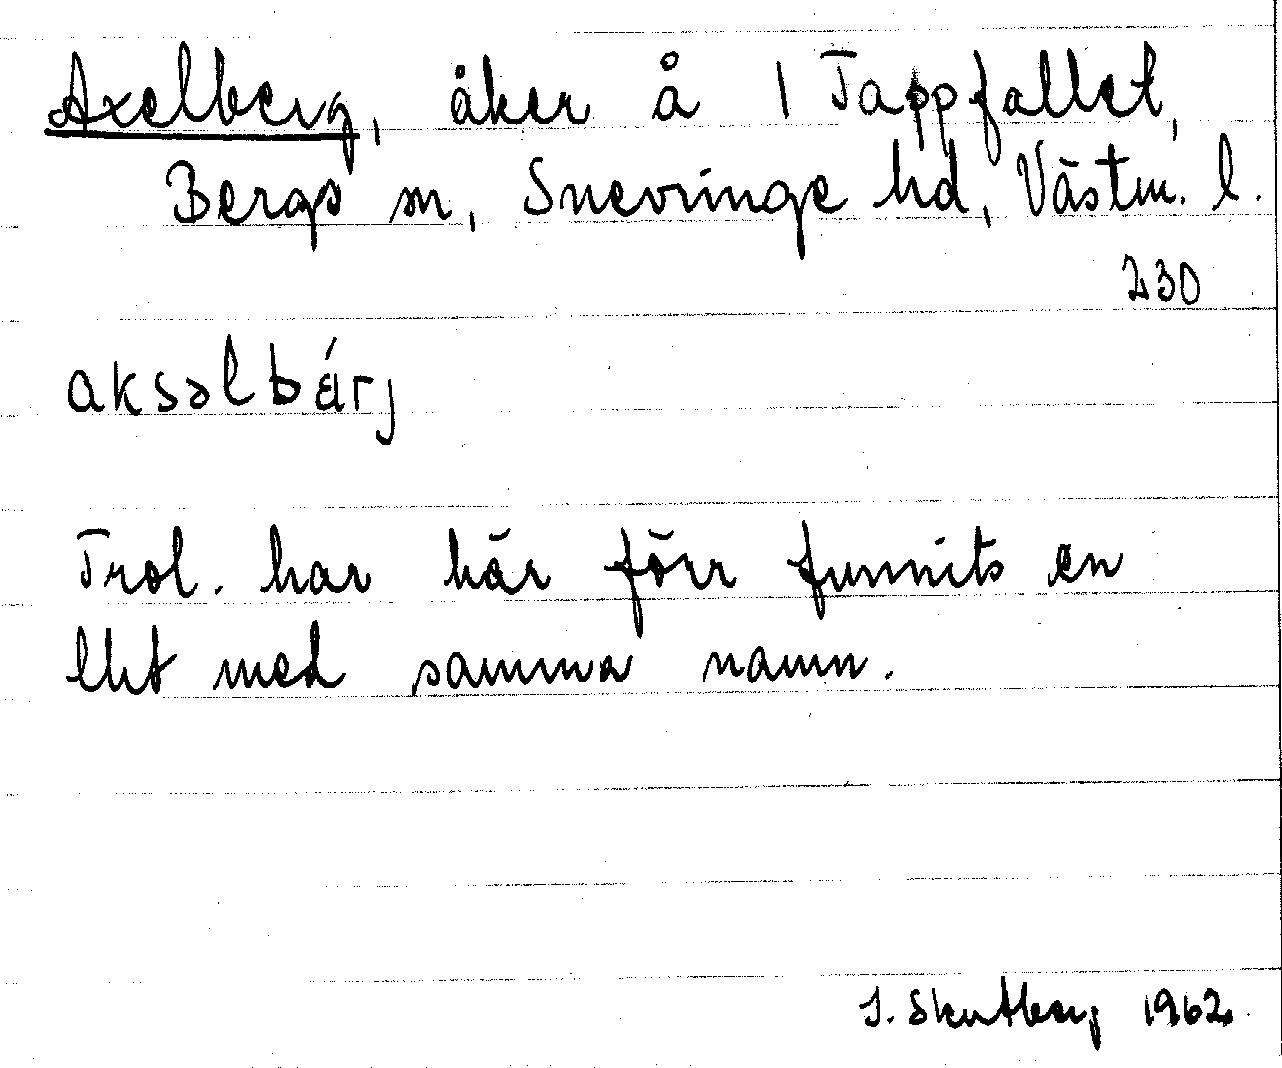 Axelberg, åker å 1 Tappfallet,
Bergs sn, Snevringe hd, Västm. l.
230
aksəlbárj
Trol. har här förr funnits en
lht med samma namn.
I. Skutberg 1962